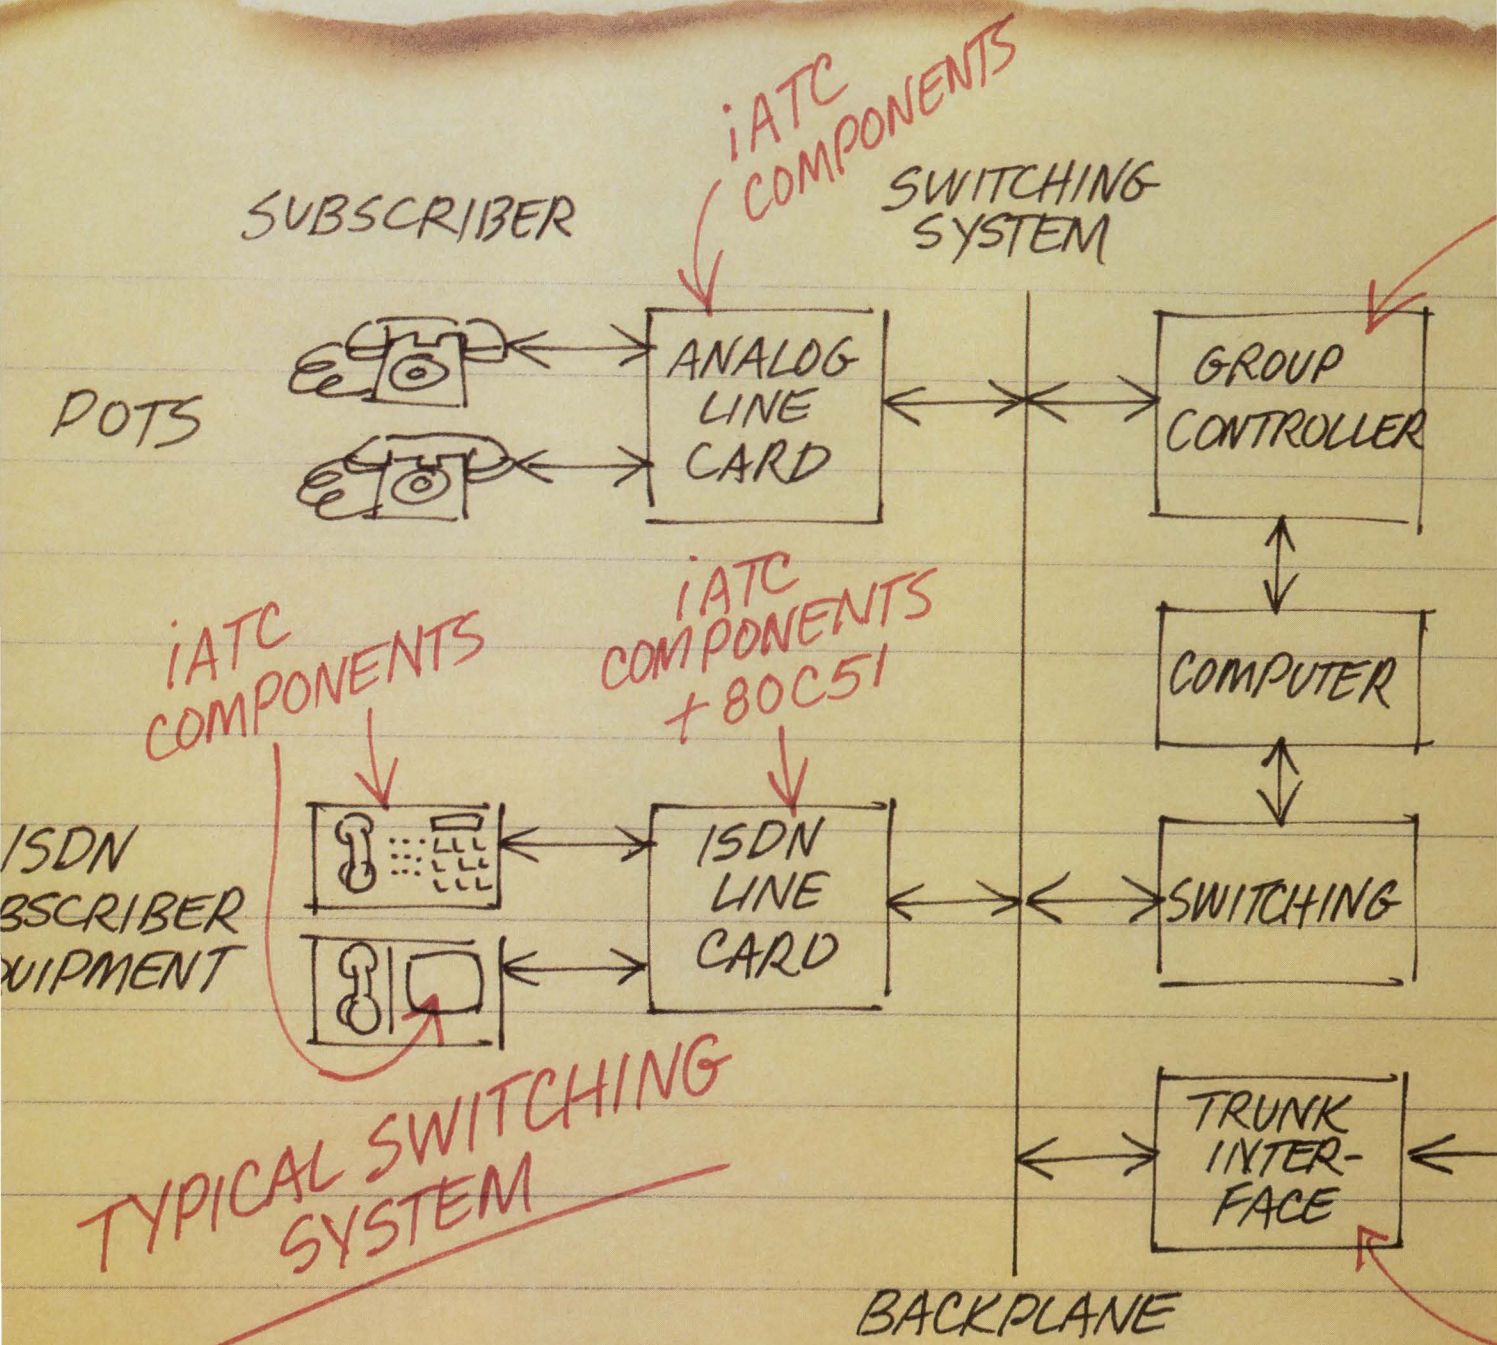 iATC
COMPONENTS
SUBSCRIBER
SWITCHING
SYSTEM
POTS
ANALOG
LINE
CARD
GROUP
CONTROLLER
iATC
COMPONENTS
iATC
COMPONENTS
+80C51
COMPUTER
ISDN
BSCRIBER
QUIPMENT
ISDN
LINE
CARD
SWITCHING
TYPICAL SWITCHING
SYSTEM
TRUNK
INTER-
FACE
BACKPLANE